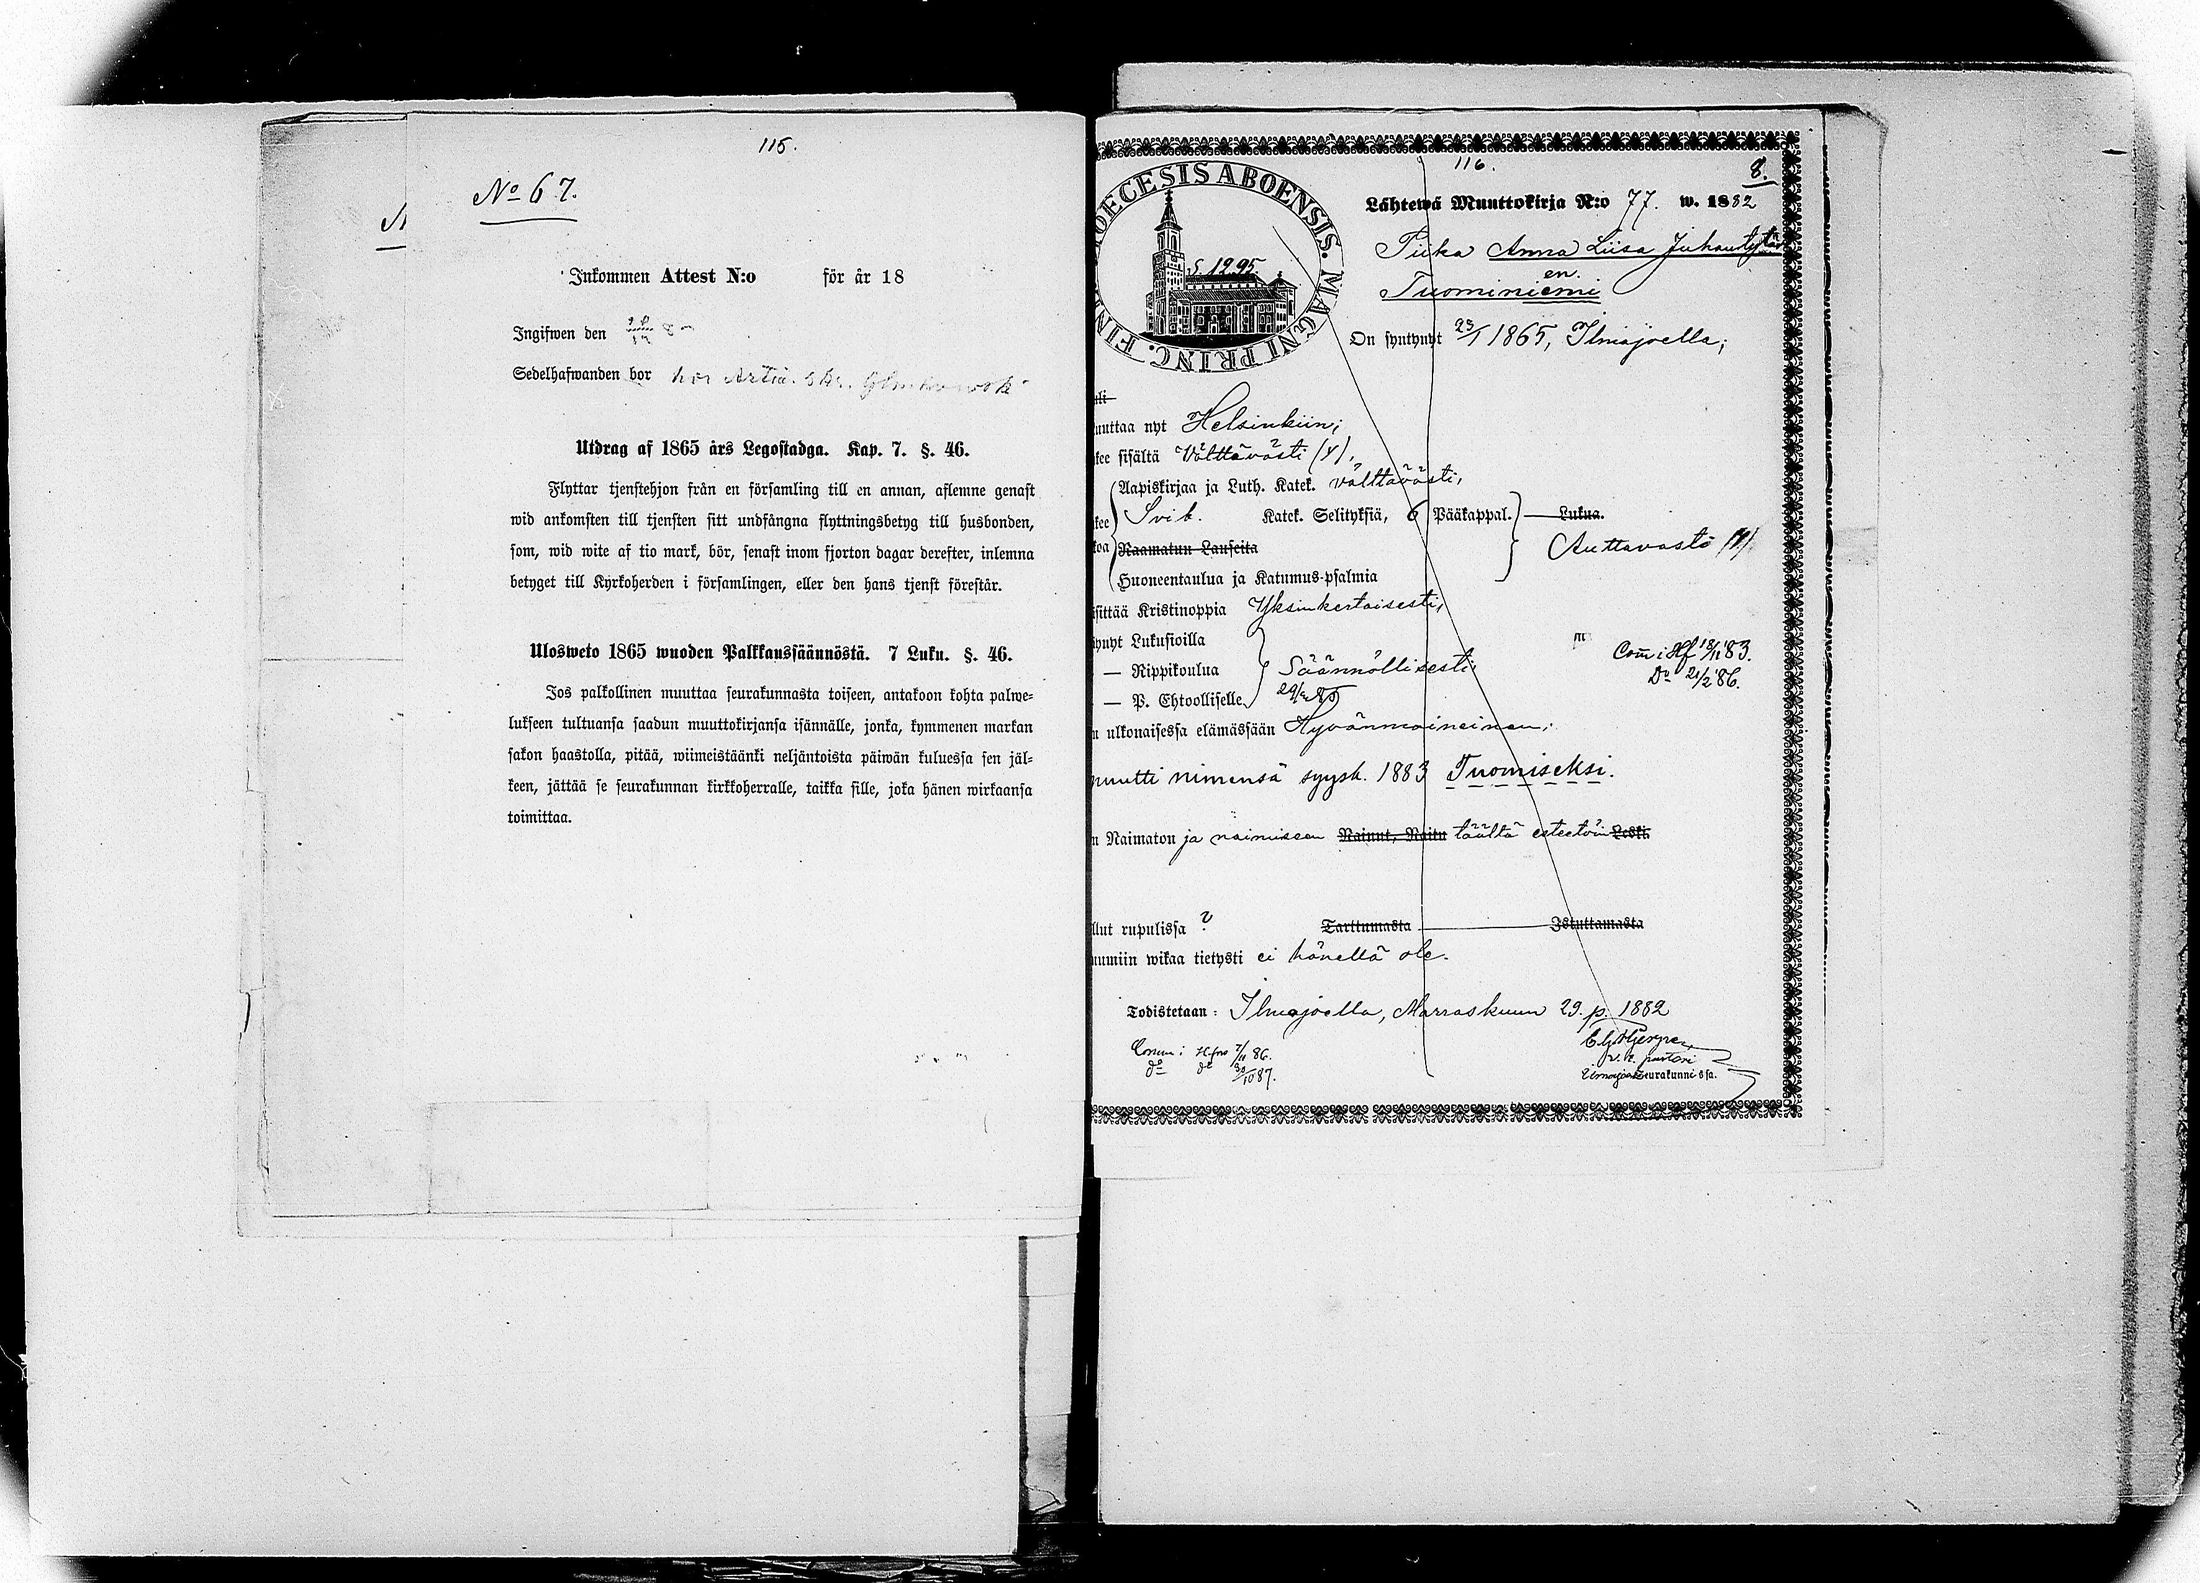 115.
No 67.
Inkommen Attest N:o för år 18
Ingifwen den
Sedelhafwanden bor hos
Utdrag af 1865 års Legostadga. Kap. 7. §. 46.
Flyttar tjenstehjon från en församling till en annan, aflemne genast
wid ankomsten till tjensten sitt undfångna flyttningsbetyg till husbonden,
som, wid wite af tio mark, bör, senast inom fjorton dagar derefter, inlemna
betyget till Kyrkoherden i församlingen, eller den hans tjenst förestår.
Ulosweto 1865 wuoden Palkkaussäännöstä. 7 Luku. §. 46.
Jos palkollinen muuttaa seurakunnasta toiseen, antakoon kohta palwe-
lukseen tultuansa saadun muuttokirjansa isännälle, jonka, kymmenen markan
sakon haastolla, pitää, wiimeistäänki neljäntoista päiwän kuluessa sen jäl-
keen, jättää se seurakunnan kirkkoherralle, taikka sille, joka hänen wirkaansa
toimittaa.
116.
8.
OECESIS ABOENSIS. MAGNI PRINC. FIN
S. 1295
Lähtewä Muuttokirja N:o 77. w. 1882
Piika Anna Liisa Juhantytär
Tuominiemi
en.
On syntynyt 23/1 1865, Ilmajoella;
uuttaa nyt Helsinkiin;
kee sisältä Välttävästi (y),
Aapiskirjaa ja Luth. Katek. välttävästi,
kee Svib. Katek. Selityksiä, 6 Pääkappal. Lukua.
koa Raamatun Lauseita Auttavasti (y).
Huoneentaulua ja Katumus-psalmia
sittää Kristinoppia Yksinkertaisesti,
ynyt Lukusioilla
— Rippikoulua Säännöllisesti
— P. Ehtoollisella
Com i Hf 18/11 83.
Do 21/2 86.
n ulkonaisessa elämässään Hyvänmaineinen;
muutti nimensä syysk. 1883 Tuomiseksi.
n Naimaton ja naimiseen Nainut, Naitu täältä esteetöin Leski.
llut rupulissa ? Tarttumasta Istuttamasta
uumiin wikaa tietysti ei hänellä ole.
Todistetaan: Ilmajoella, Marraskuun 29. p. 1882
v. t. pastori
Ilmajoen Seurakunnissa.
Comm i H.fors 7/11 86.
do do 30/10 87.